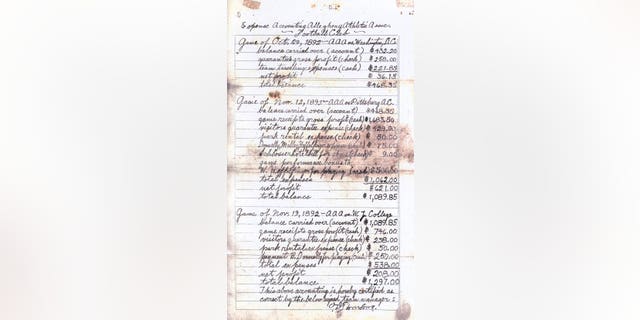 Expense Accounting Allegheny Athletic Assoc.
Football Club
Game of Oct. 29, 1892 - AAA vs Washington D.C.
balance carried over (account) $432.20
guarantee gross profit (check) $250.00
team traveling expenses (cash) $221.85
net profit $ 36.15
total balance $468.35
Game of Nov. 12, 1892 - AAA vs Pittsburg A.C.
balance carried over (account) $468.35
game receipts gross profit (cash) $1,683.50
visitors guarantee expense (check)
park rental expense (check) $ 50.00
$ 75.00
football for $ 9.00
game performance bonus to
W. Heffelfinger for playing (cash)
total expenses $1,062.00
net profit $621.00
total balance $1,089.85
Game of Nov. 19, 1892 - AAA vs W. J. College
balance carried over (account) $1,089.85
game receipts gross profit (cash) $ 746.00
visitors guarantee expense (check) $ 238.00
park rental expense (check) $ 50.00
payment to Donnelly for playing (cash) $ 250.00
total expenses $538.00
net profit $ 208.00
total balance $1,297.00
This above accounting is hereby certified as
correct by the below signed team manager